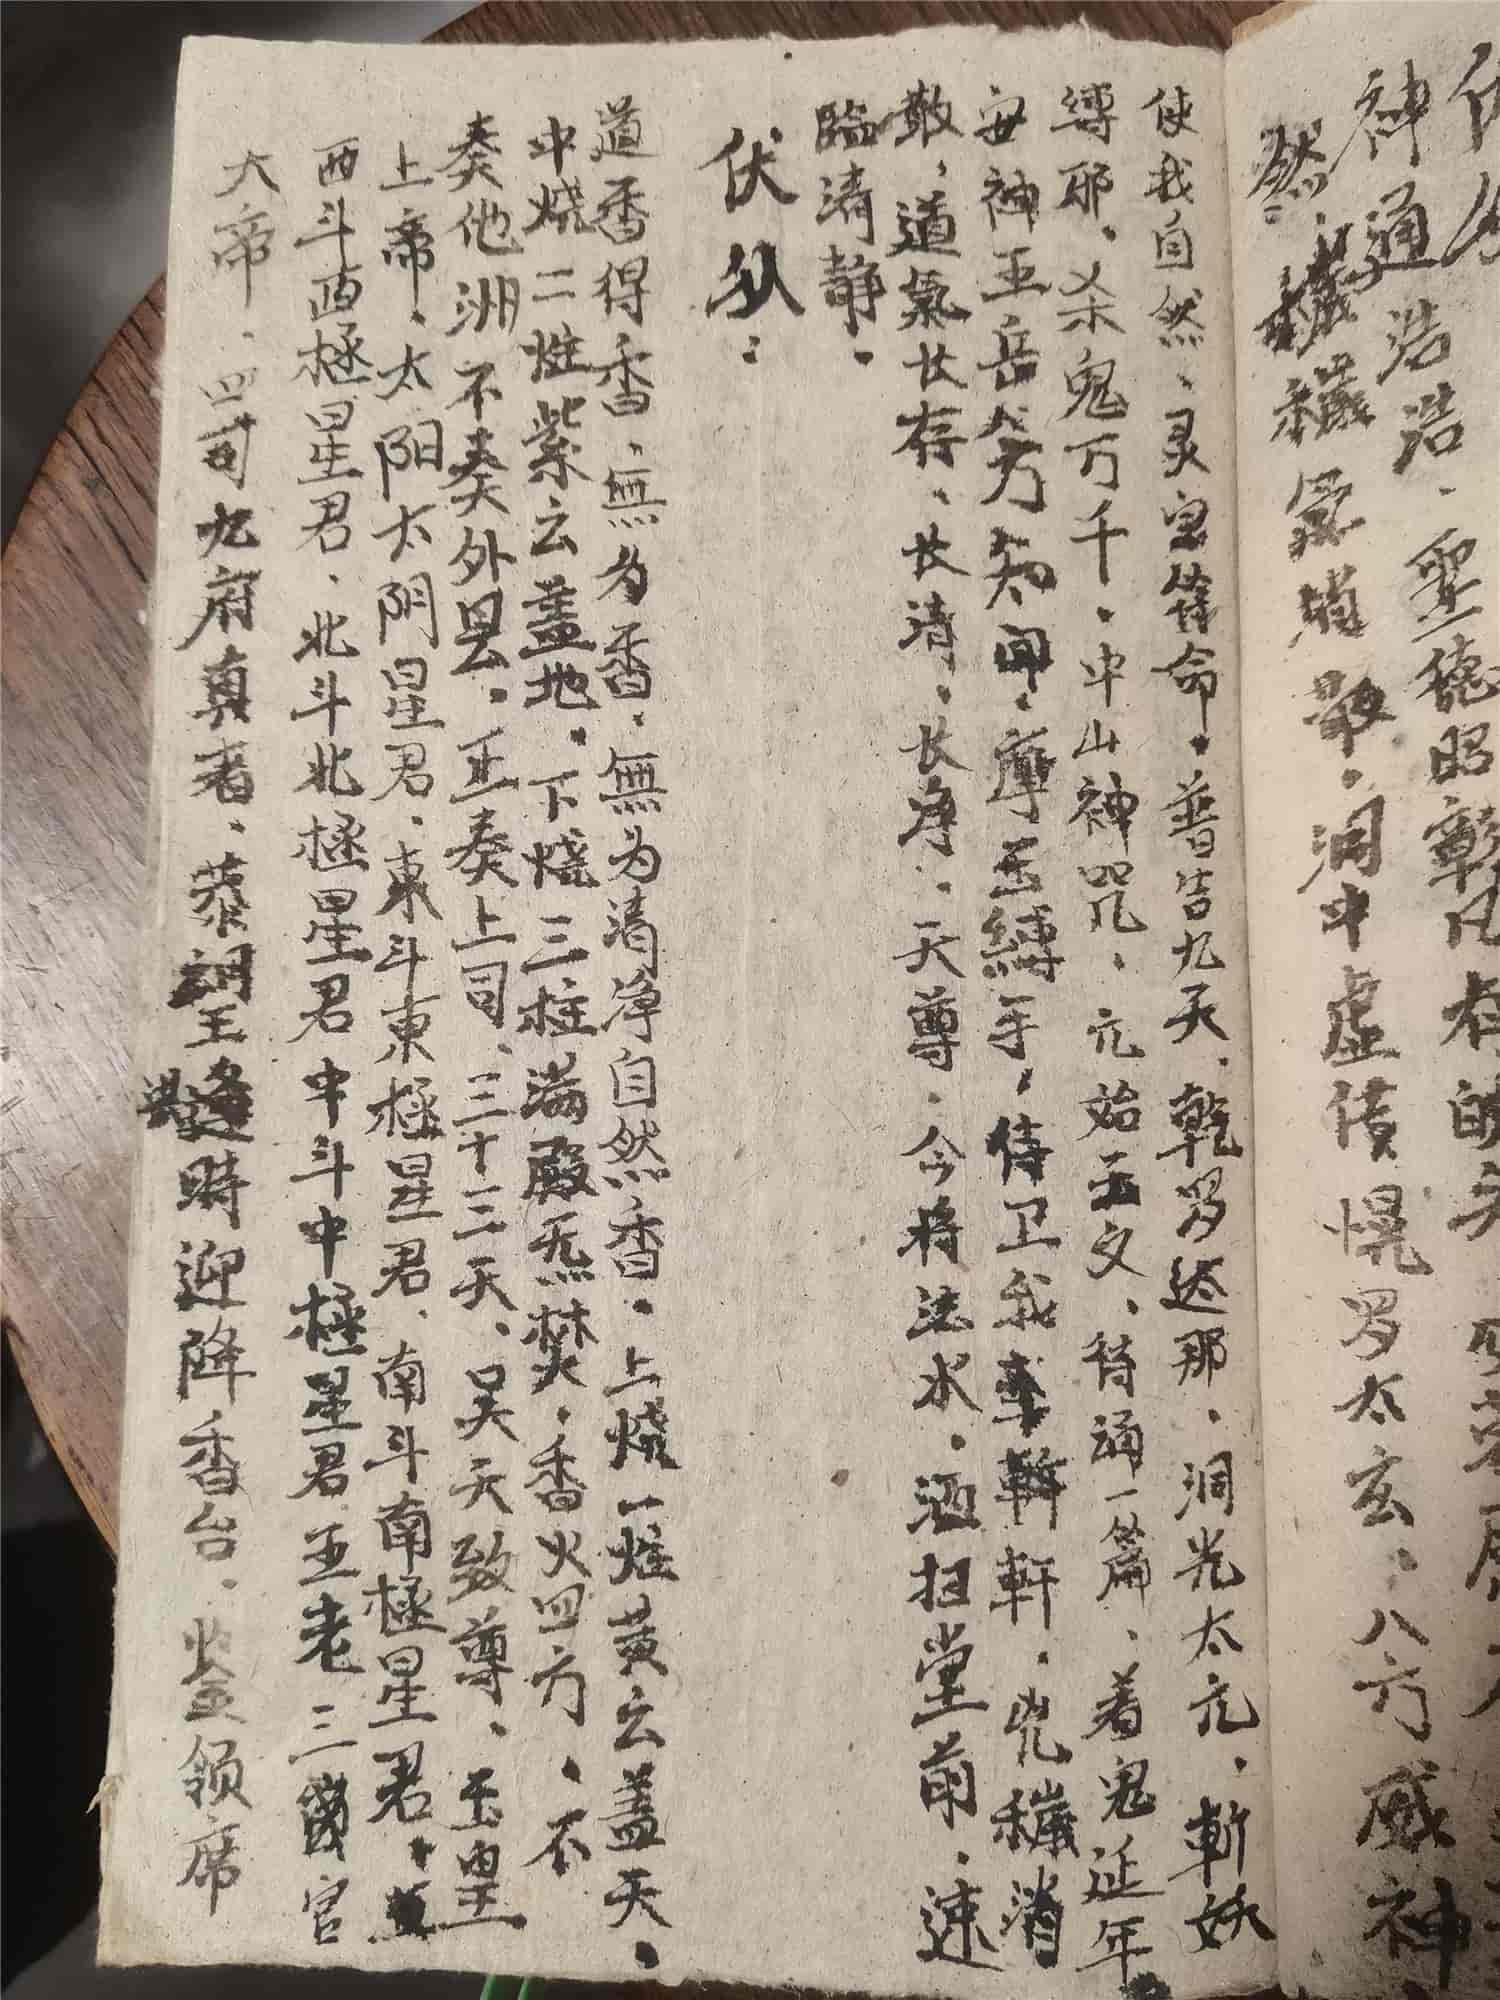 神通浩浩、聖德昭彰凡有
然、穢氣消散、洞中虚、幌罗太玄、八方威神
使我自然、灵宝符命、普告九天、乾罗达那、洞光太元、斬妖
缚邪、杀鬼万千、中山神咒、元始玉文、持誦一篇、着鬼延年
安神五岳、八方知闻、摩王縛手、侍卫我軒、兇穢消
散、道氣长存、长清、长净、天尊、今将法水、洒扫堂前、速
臨清静、
伏以：
道香得香、無为香、無为清净自然香、上燒一炷黄云蓋天、
中烧二炷紫云蓋地、下烧三柱滿殿焚、香火四方、不
奏他洲不奏外县、正奏上司、三十三天、昊天致尊、玉皇
上帝、太阳太阴星君、東斗東極星君、南斗南極星君、
西斗西極星君、北斗北極星君中斗中極星君、五老三官
大帝、四司九府真者、時迎降香台、登领席